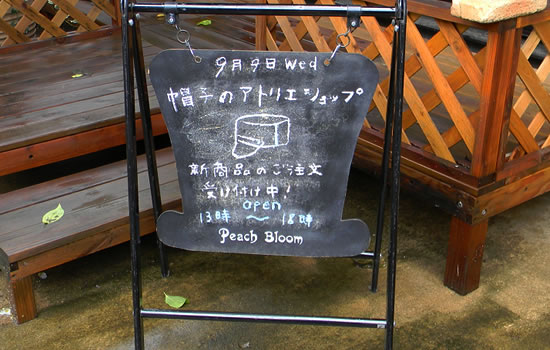 9月9日 Wed
帽子のアトリエショップ
新商品のご注文
受け付け中!
open
13時 〜 18時
Peach Bloom